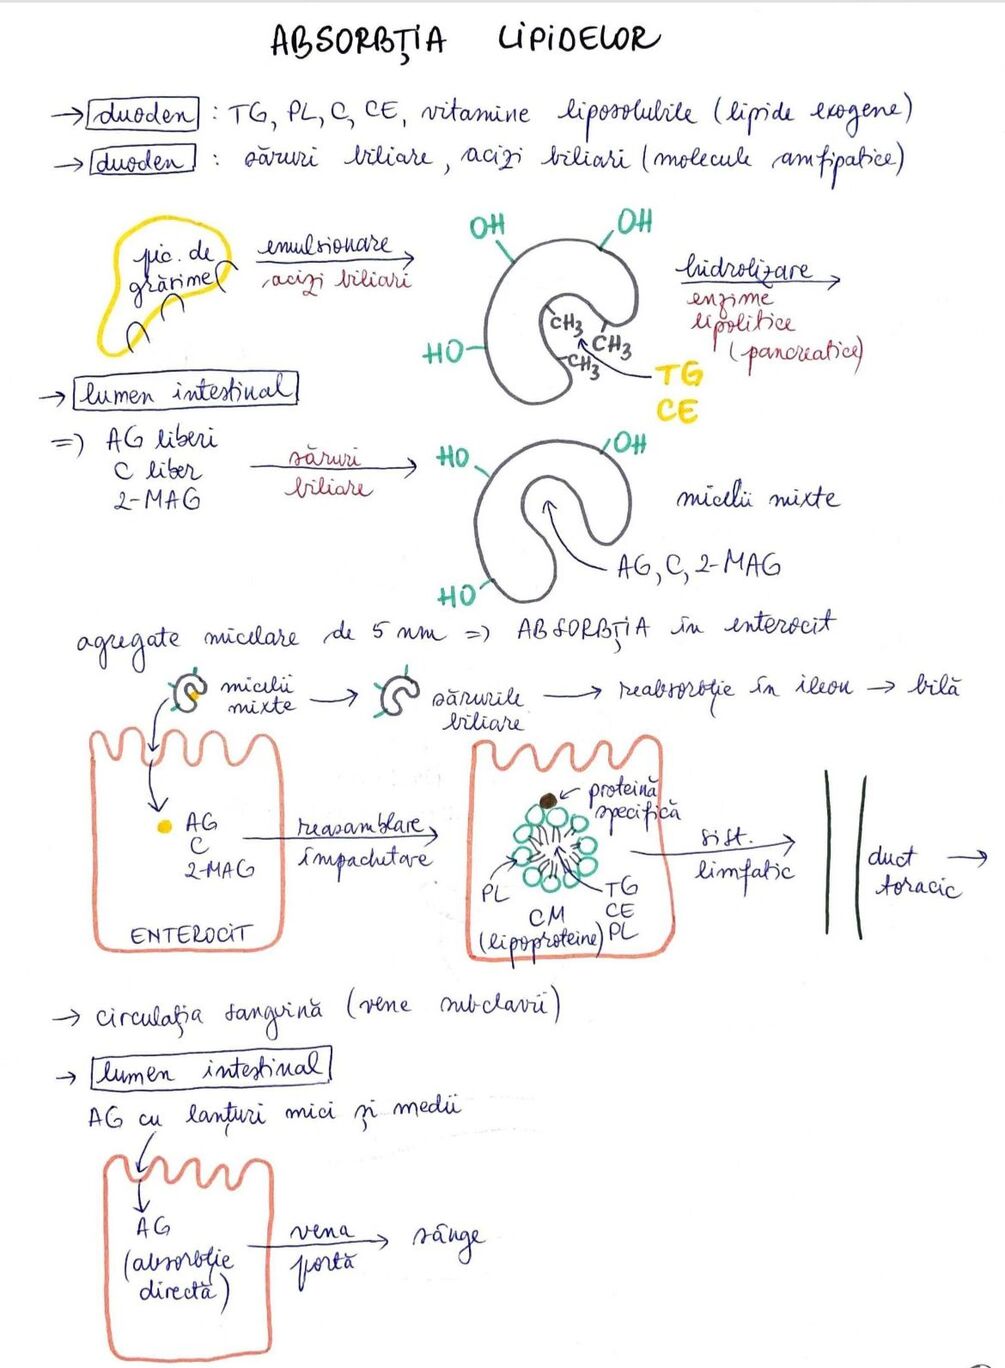 ABSORBȚIA LIPIDELOR
→ duoden : TG, PL, C, CE, vitamine liposolubile (lipide exogene)
→ duoden : săruri biliare, acizi biliari (molecule amfipatice)
pic. de
grăsime
emulsionare
acizi biliari
OH
OH
HO
CH3
CH3
CH3
TG
CE
hidrolizare
enzime
lipolitice
(pancreatice)
→ lumen intestinal
=> AG liberi
C liber
2-MAG
săruri
biliare
HO
OH
HO
micelii mixte
AG, C, 2-MAG
agregate micelare de 5 nm => ABSORBȚIA în enterocit
micelii
mixte
sărurile
biliare
→ reabsorbție în ileon → bilă
AG
C
2-MAG
ENTEROCIT
reasamblare
împachetare
proteină
specifică
PL
TG
CE
PL
CM
(lipoproteine)
sist.
limfatic
duct
toracic
→ circulația sanguină (vene subclavii)
→ lumen intestinal
AG cu lanțuri mici și medii
AG
(absorbție
directă)
vena
portă
sânge